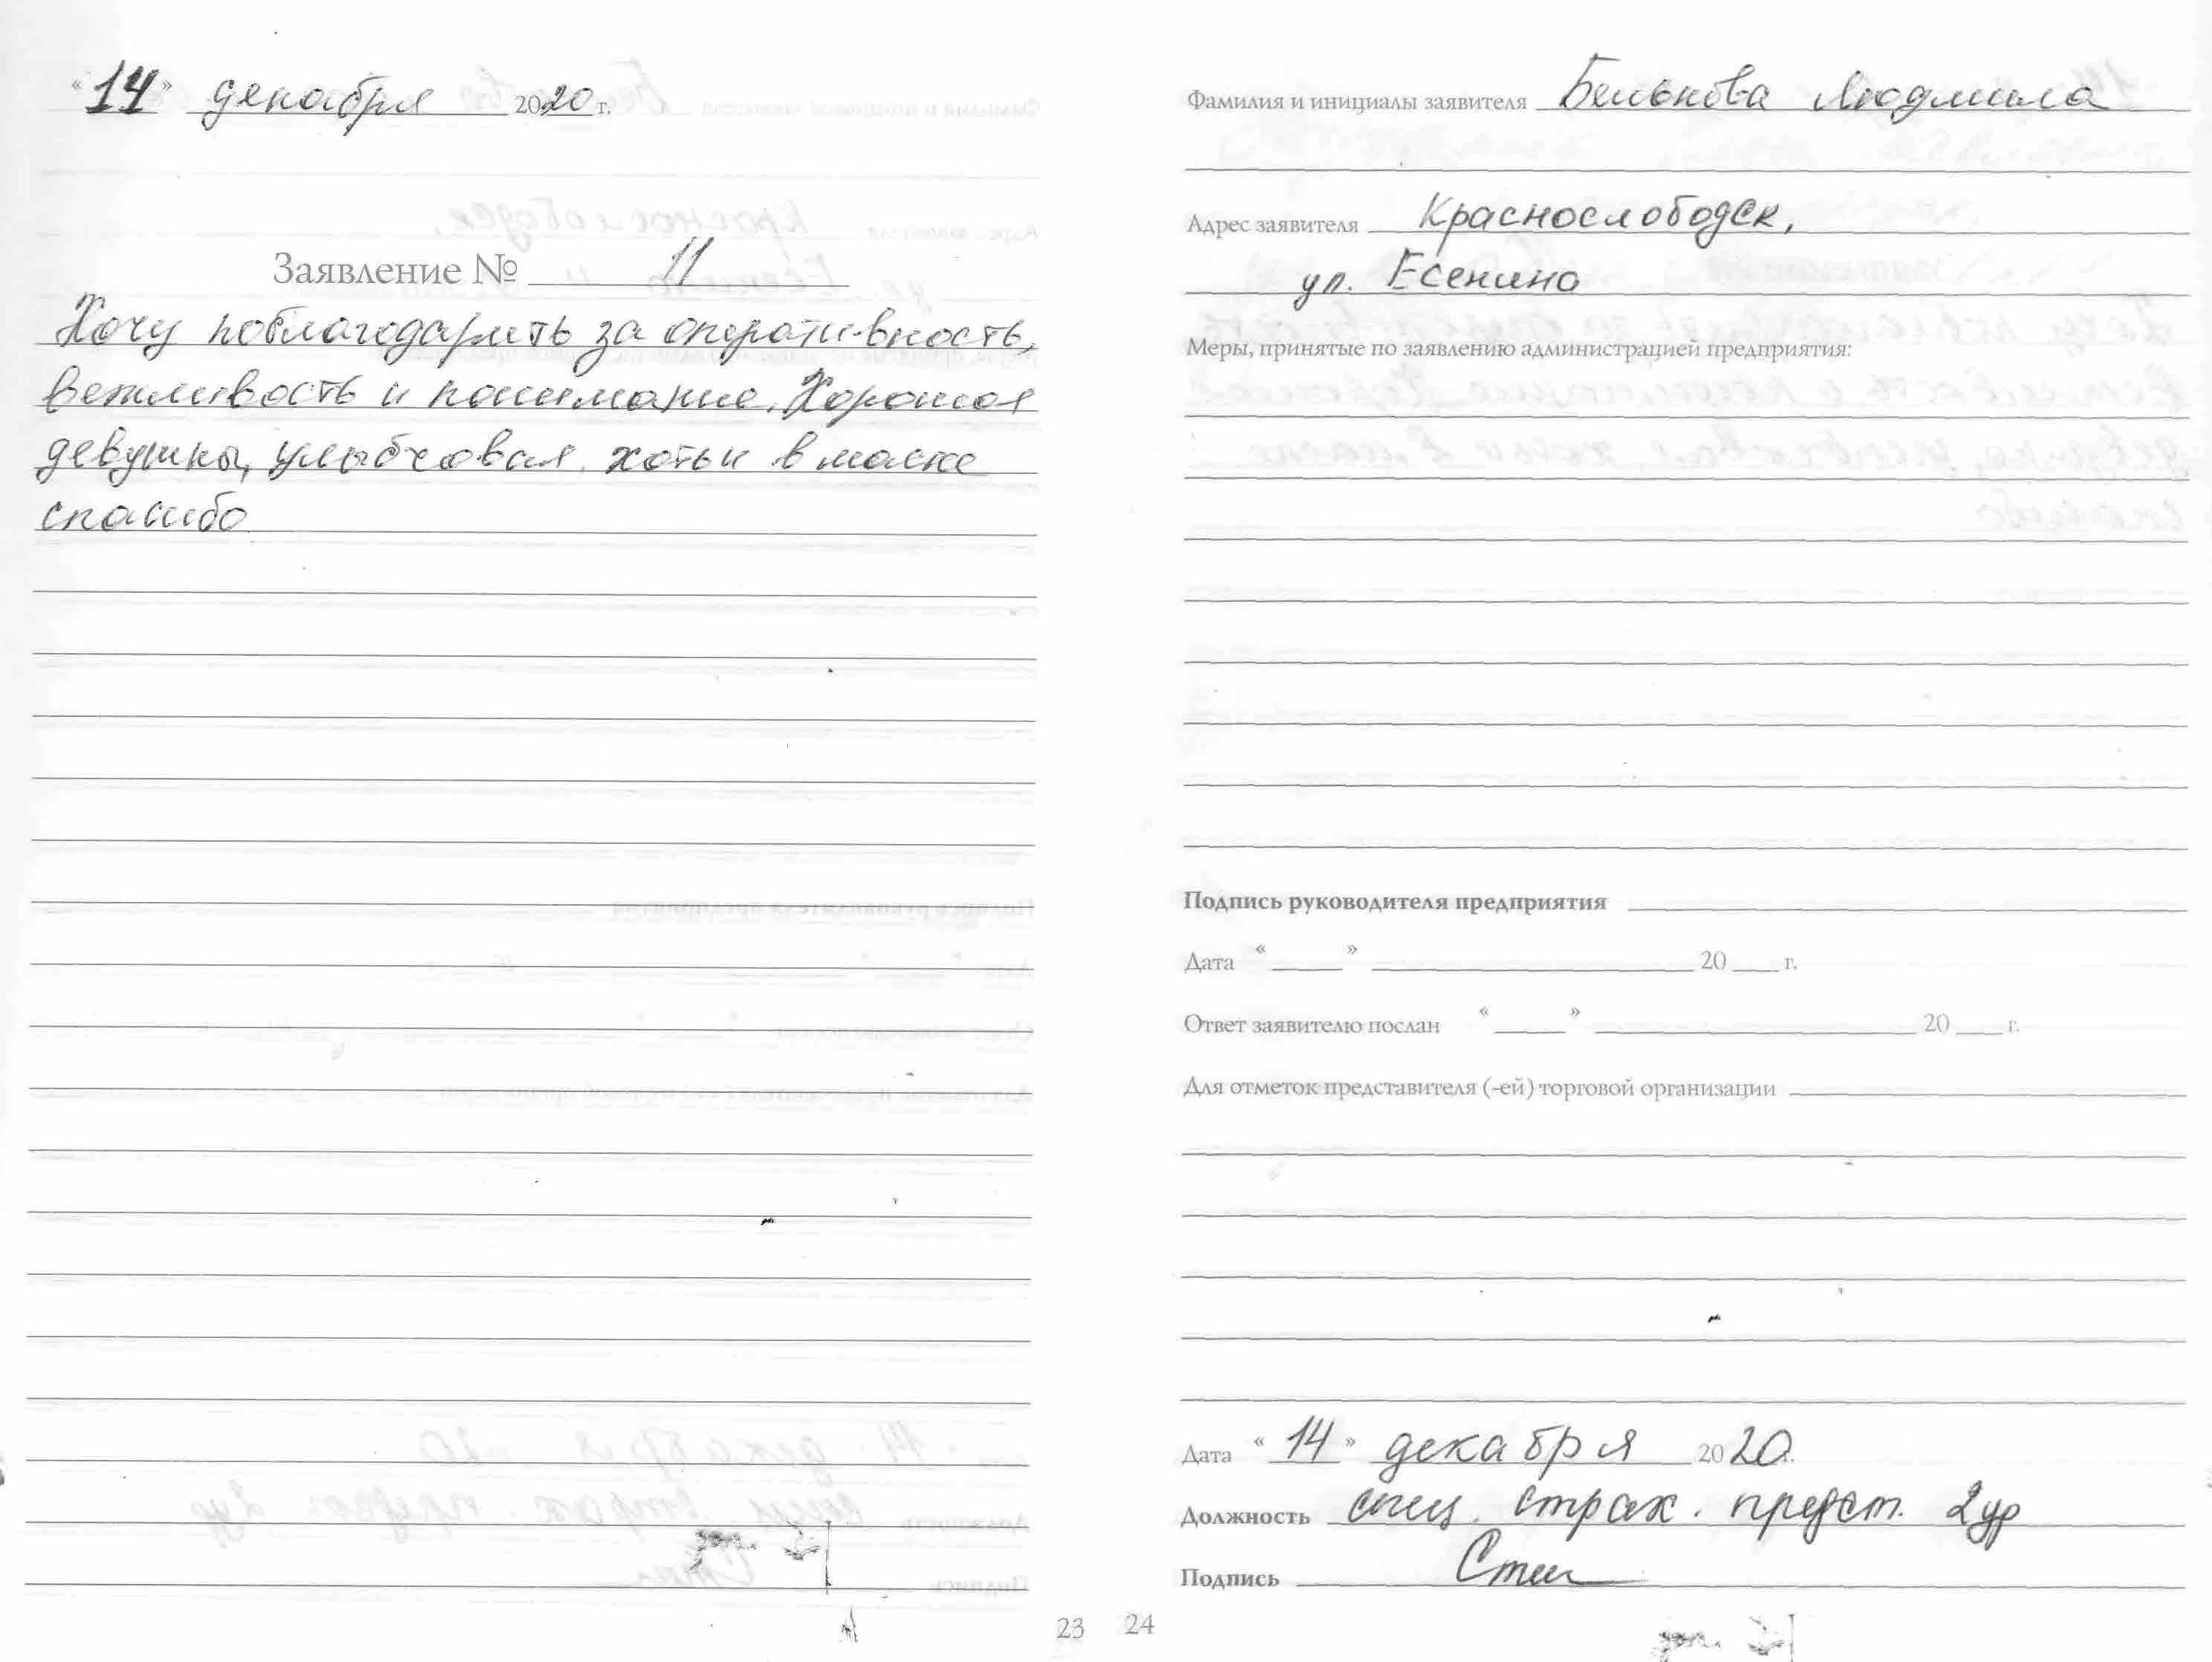 « 14 » декабря 2020 г.
Заявление № 11
Хочу поблагодарить за оперативность,
вежливость и понимание. Хорошая
девушка, улыбчовая, хоть и в маске
спасибо
23
Фамилия и инициалы заявителя Белькова Людмила
Адрес заявителя Краснослободск,
ул. Есенина
Меры, принятые по заявлению администрацией предприятия:
Подпись руководителя предприятия
Дата « » 20 г.
Ответ заявителю послан « » 20 г.
Для отметок представителя (-ей) торговой организации
Дата « 14 » декабря 2020.
Должность спец. страх. предст. 2ур
Подпись
24